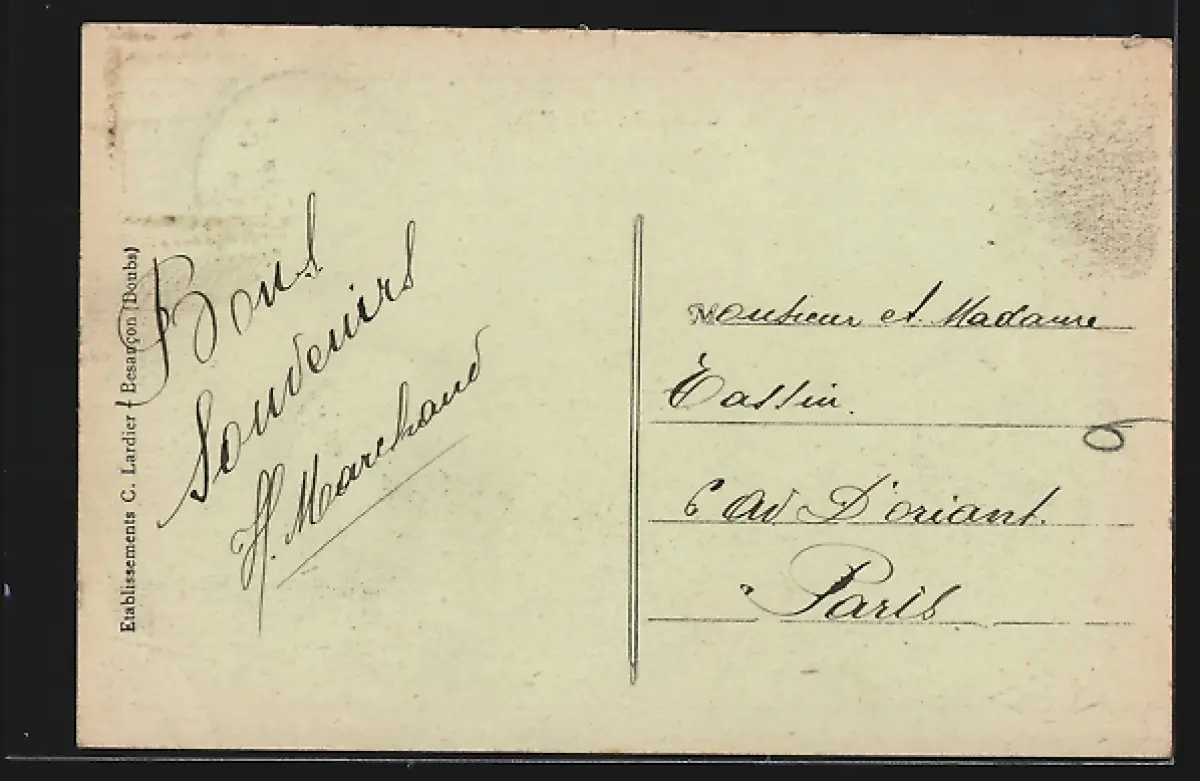 Etablissements C. Lardier - Besançon (Doubs)
Bons
Souvenirs
H. Marchand
Monsieur et Madame
Tassin.
6 Av D'oriant.
Paris
6